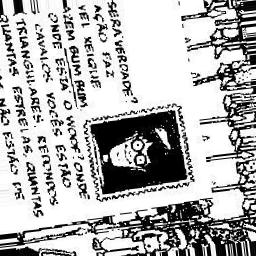 VERDADE?
AÇÃO FAZ
XEIQUE
BUM BUM
ONDE ESTÁ O WOOF? ONDE
CAVALOS VOCÊS ESTÃO
TRIANGULARES, REDONDOS
QUANTAS ESTRELAS, QUANTAS
NÃO ESTÃO DE